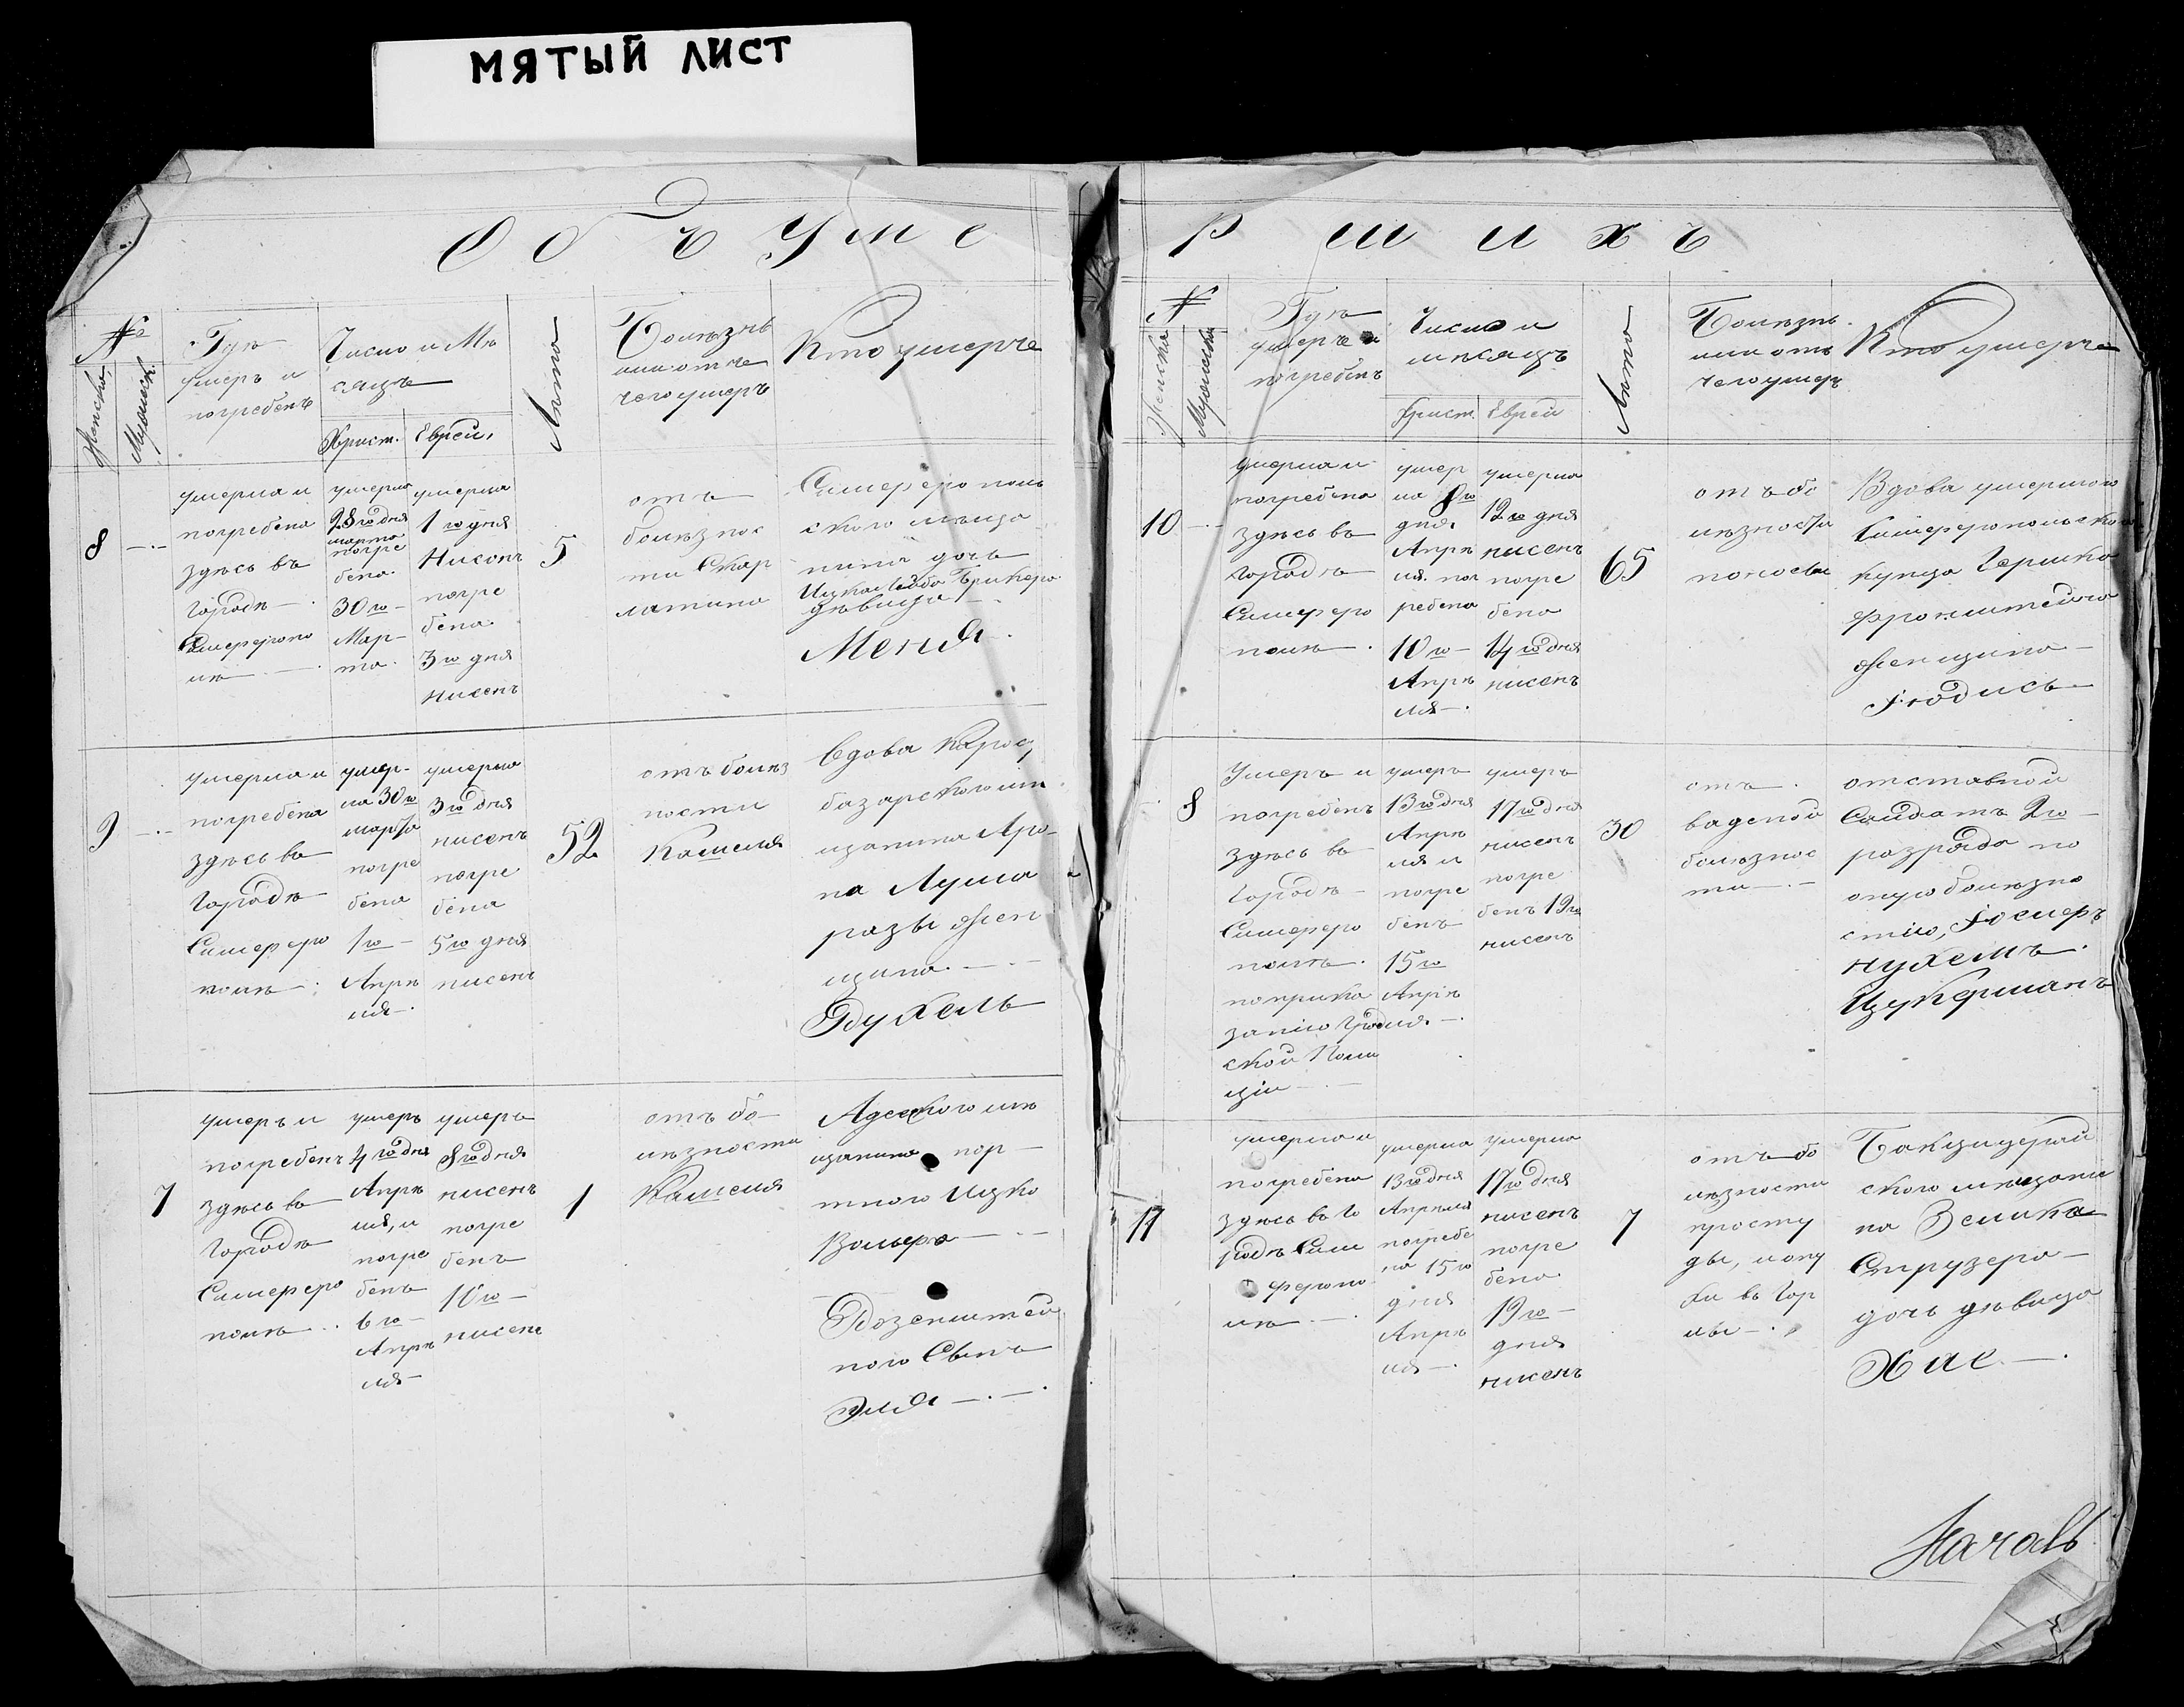 МЯТЫЙ ЛИСТ
Объ Уме
№
Женска
Мужеск.
Где
умеръ и
погребенъ
Число и Мѣ
сяцъ
Христ.
Еврей.
Лѣто
Болѣзнь
или отъ
чего умеръ
Кто умерже
8
умерла и
погребена
здѣсь въ
городѣ
Симферопо
лѣ
умерла
28го дня
марта
погре
бена
30го
Мар-
та.
умерла
1го дня
Нисонъ
погре
бена
3го дня
нисенъ
5
отъ
болѣзнос
ти Скар
латина
Симферополь
скаго мѣща
нина дочь
Ицка
дѣвица
Меня.
9
умерла и
погребена
здѣсь въ
городѣ
Симферо
полѣ
умер-
ла 30го
марта
погре
бена
1го
Апрѣ
ля.
умерла
3го дня
нисенъ
погре
бена
5го дня
нисенъ
52
отъ болѣз
ности
Кашеля
Вдова Карасу
базарского мѣ
щанина Аро-
на Лума
разы Жен
щина
Рухель
7
умеръ и
погребенъ
здѣсь въ
городѣ
Симферо
полѣ
умеръ
4го дня
Апрѣ
ля, и
погре
бенъ
6го
Апрѣ
ля
умеръ
8го дня
нисенъ
погре
бенъ
10го
нисенъ
1
отъ бо
лѣзности
Кашеля
Адеского мѣ
щанина пор
тного Ицко
Вольера
Розенштей
ного Сынъ
Эля
ршихъ
№
Женска
Мужеска
Гдѣ
умерже и
погребенъ
Число и
мѣсяцъ
Христ.
Еврей
Лѣто
Болѣзнь
или отъ
чего умеръ
Кто умерже
10
умерла и
погребена
здѣсь въ
городѣ
Симферо
полѣ.
умер
ла 8го
дня
Апрѣ
ля. пог
ребена
10го
Апрѣ
ля.
умерла
12го дня
нисенъ
погре
бена
14го дня
нисенъ
65
отъ бо
лѣзности
поносы
Вдова умершого
Симферопольского
купца Гершка
Фронштейна
Женщина
Юдись
8
Умеръ и
погребенъ
здѣсь въ
городѣ
Симферо
полѣ.
поприка
занію Град
ской Поли
ціи
умеръ
13го дня
Апрѣ
ля и
погре
бенъ
15го
Апрѣ
ля.
умеръ
17го дня
нисенъ
погре
бенъ 19го
нисенъ
30
отъ
ваденой
болѣзнос
ти
отставной
Салдатъ 2го
разряда по
оную болѣзно
стію,
нухемъ
Цукерманъ
11
умерла и
погребена
здѣсь въ го
родѣ Сим
феропо
лѣ
умерла
13го дня
Апрѣля
погребе
на 15го
дня
Апрѣ
ля
умерла
17го дня
нисенъ
погре
бена
19го
дня
нисенъ
7
отъ бо
лѣзности
просту
ды, и опу
хи въ гор
лы
ского мѣщани
на Зелика
Струзера
дочь дѣвица
Хае